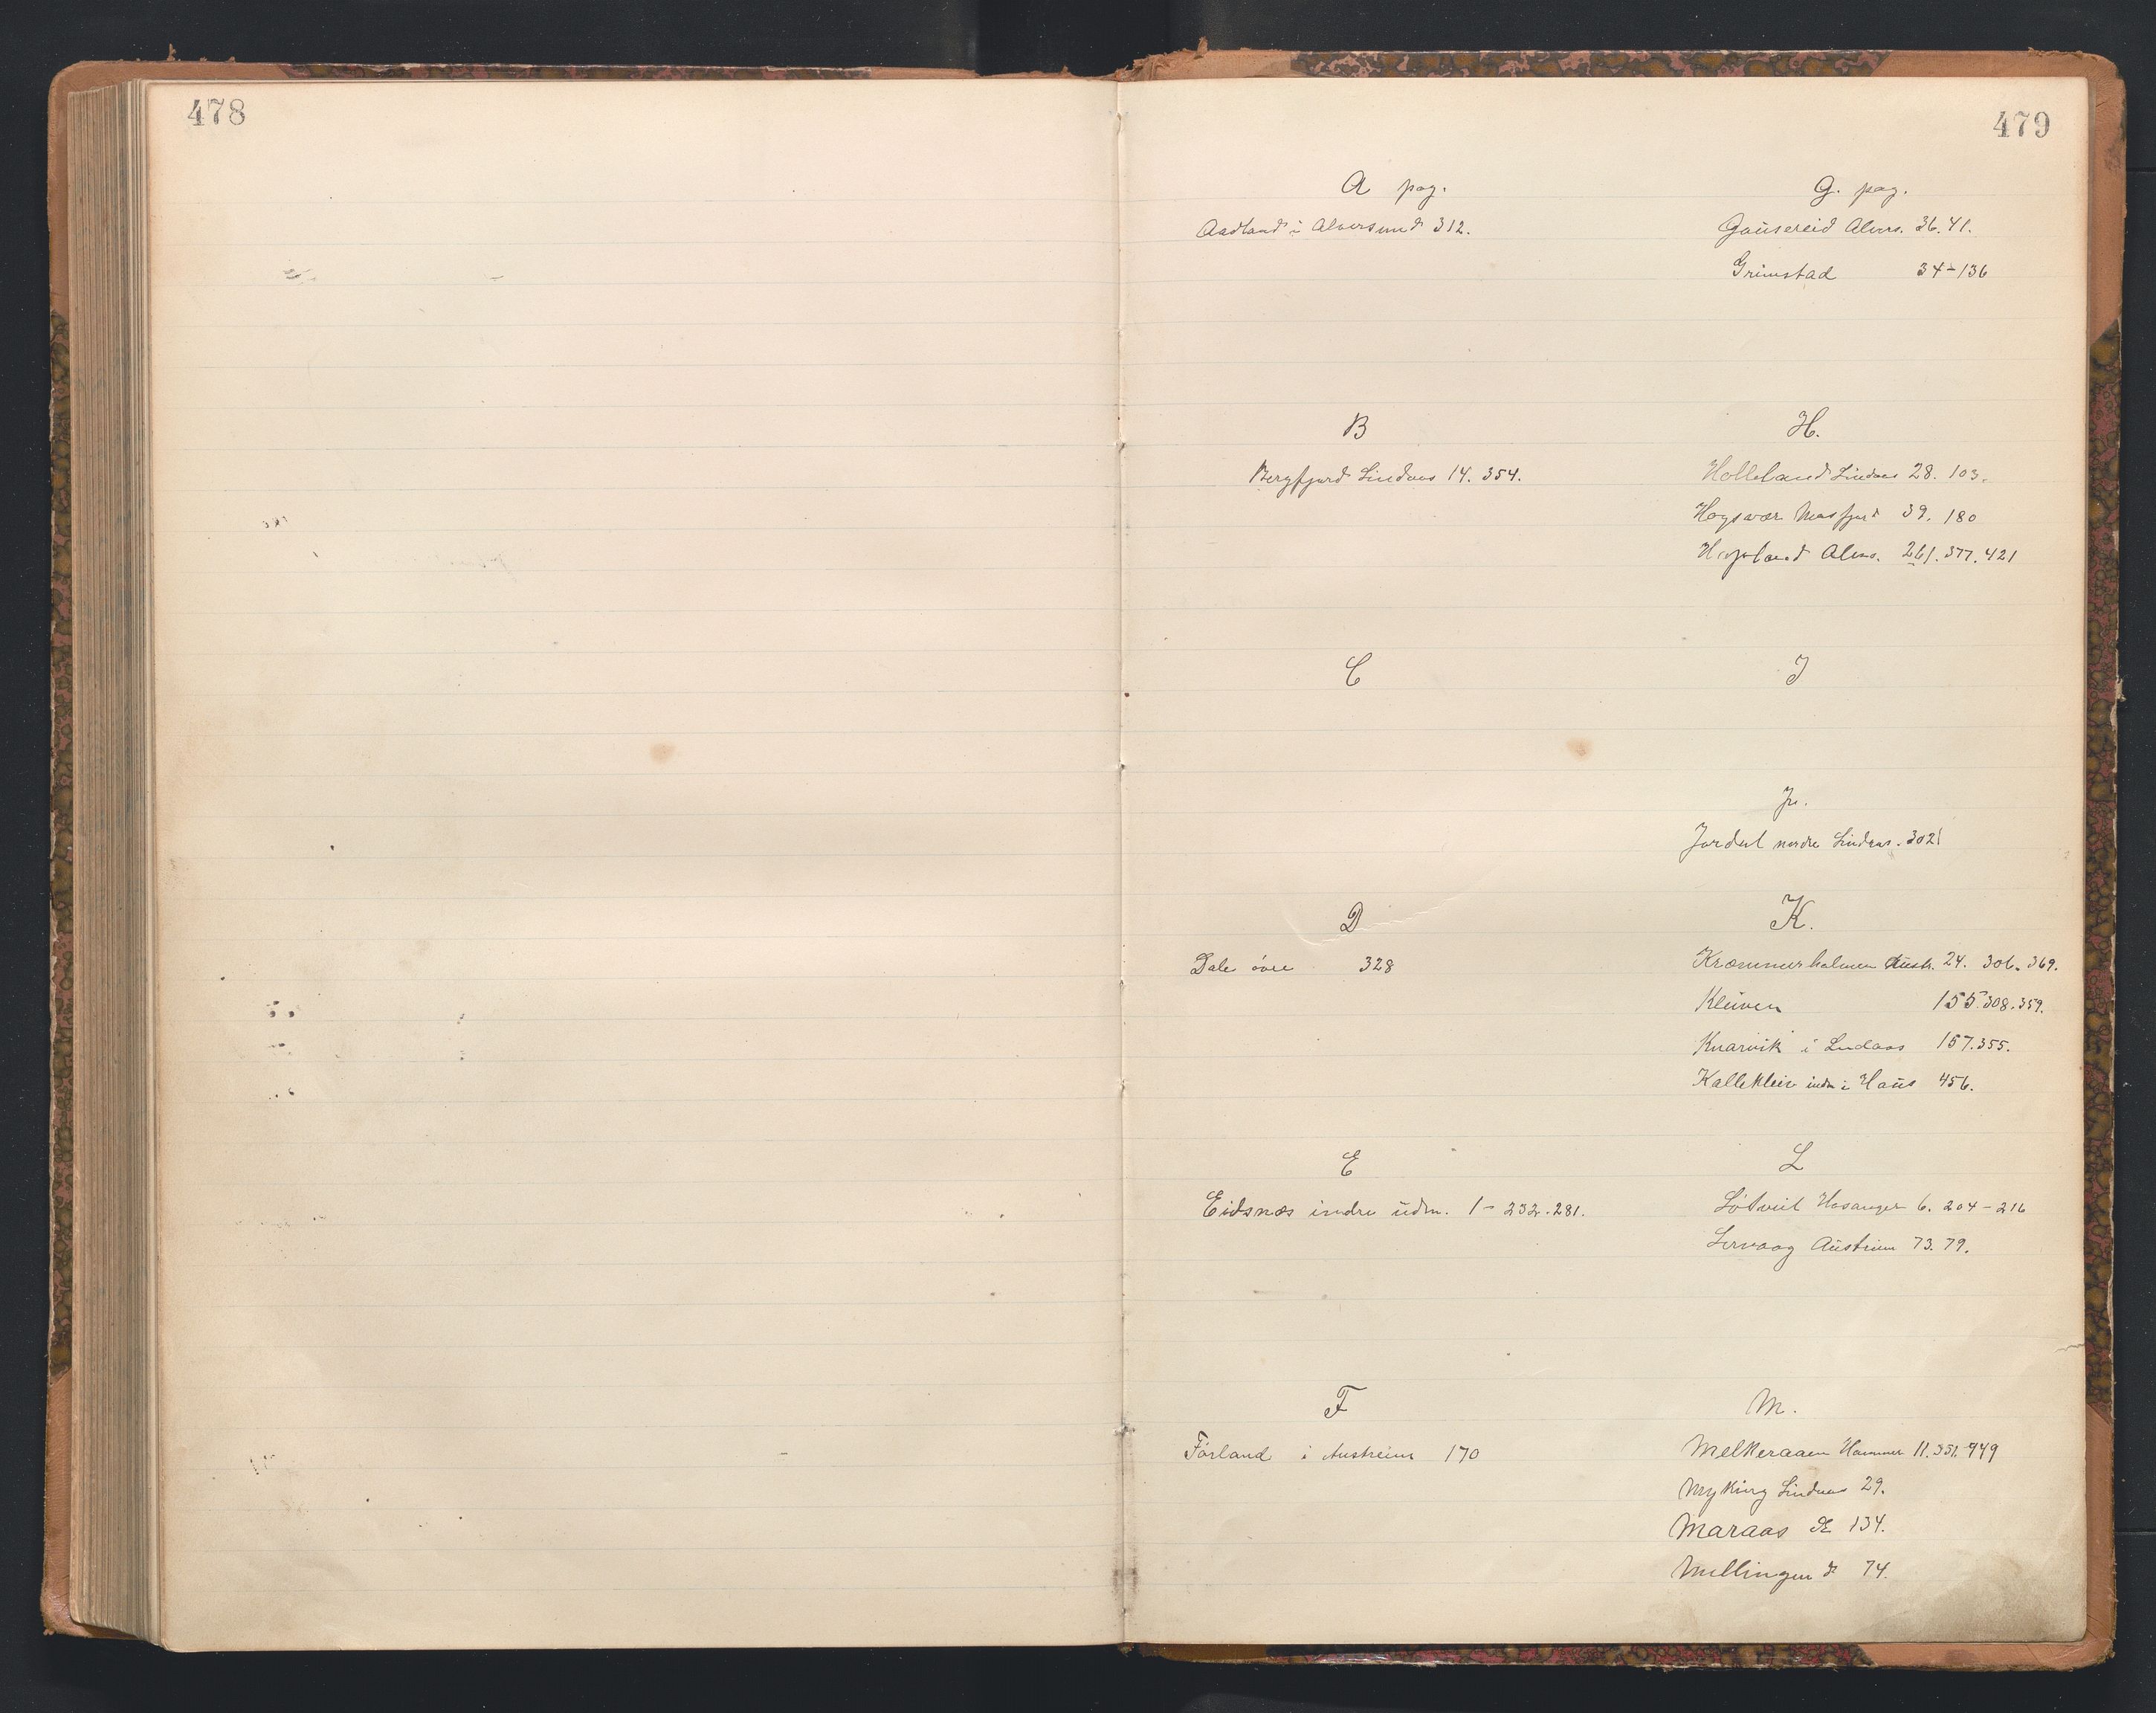 478
479
A pag.
Aadland i Alversund 312.
B
Bergfjord Lindaas 14. 354.
C
D
Dale övre 328
E
Eidsnæs indre üdm. 1 - 232. 281.
F
Forland i Austreim 170
G. pag.
Gaüsereid Alvers. 36. 41.
Grimstad 34 - 136
H.
Holleland Lindaas 28. 103.
Hogsvær Masfjord 39. 180
Hopland Alvs. 261. 377. 421
I
Jordal nordre Lindaas. 302
K.
Kræmmerholmen Austr. 24. 306. 369.
Kleiven 155. 308. 359.
Knarvik i Lindaas 157. 355.
Kallekleiv indre i Haüs 456.
L
Løtveit Hosanger 6. 204 - 216
Lervaag Aüstreim 73. 79.
M.
Melkeraaen Hammer 11. 351. 449
Myking Lindaas 29.
Maraas 134.
Mellingen 74.